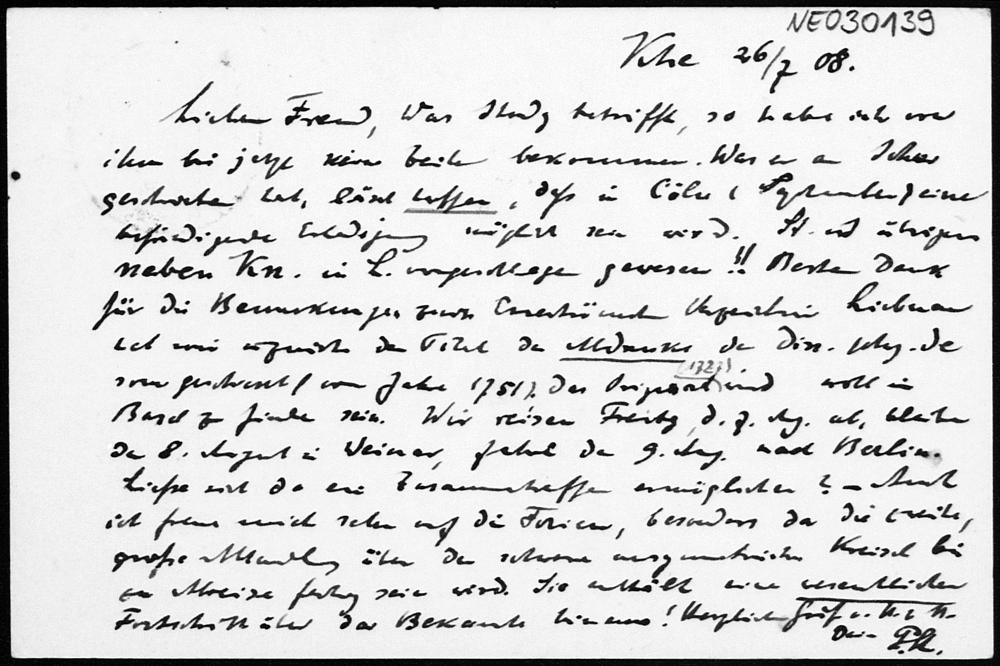 NE030139
Khe 26/7 08.
Lieber Freund, Was Study betrifft, so habe ich von
ihm bis jetzt keine Zeile bekommen. Was er an
geschrieben hat, lässt hoffen, dass in Cöln (September) eine
befriedigende Erledigung möglich sein wird. St. ist übrigens
neben Kn. in L. vorgeschlagen gewesen!! Besten Dank
für die Bemerkungen zum Liebman
hat mir der Titel des Abdrucks der Diss. phys. de
sono geschickt (vom Jahre 1751). Das Original (1727) wird wohl in
Basel zu finden sein. Wir reisen Freitag, d. 7. Aug. ab, bleiben
den 8. August in Weimar, fahren den 9. Aug. nach Berlin.
Ließe sich da ein Zusammentreffen ermöglichen? – Auch
ich freue mich sehr auf die Ferien, besonders da die zweite,
große Abhandlg über den schweren unsymmetrischen Kreisel bis
zur Abreise fertig sein wird. Sie enthält einen wesentlichen
Fortschritt über das Bekannte hinaus! Herzlichen Gruß v. H. z. H.
Dein P. St.